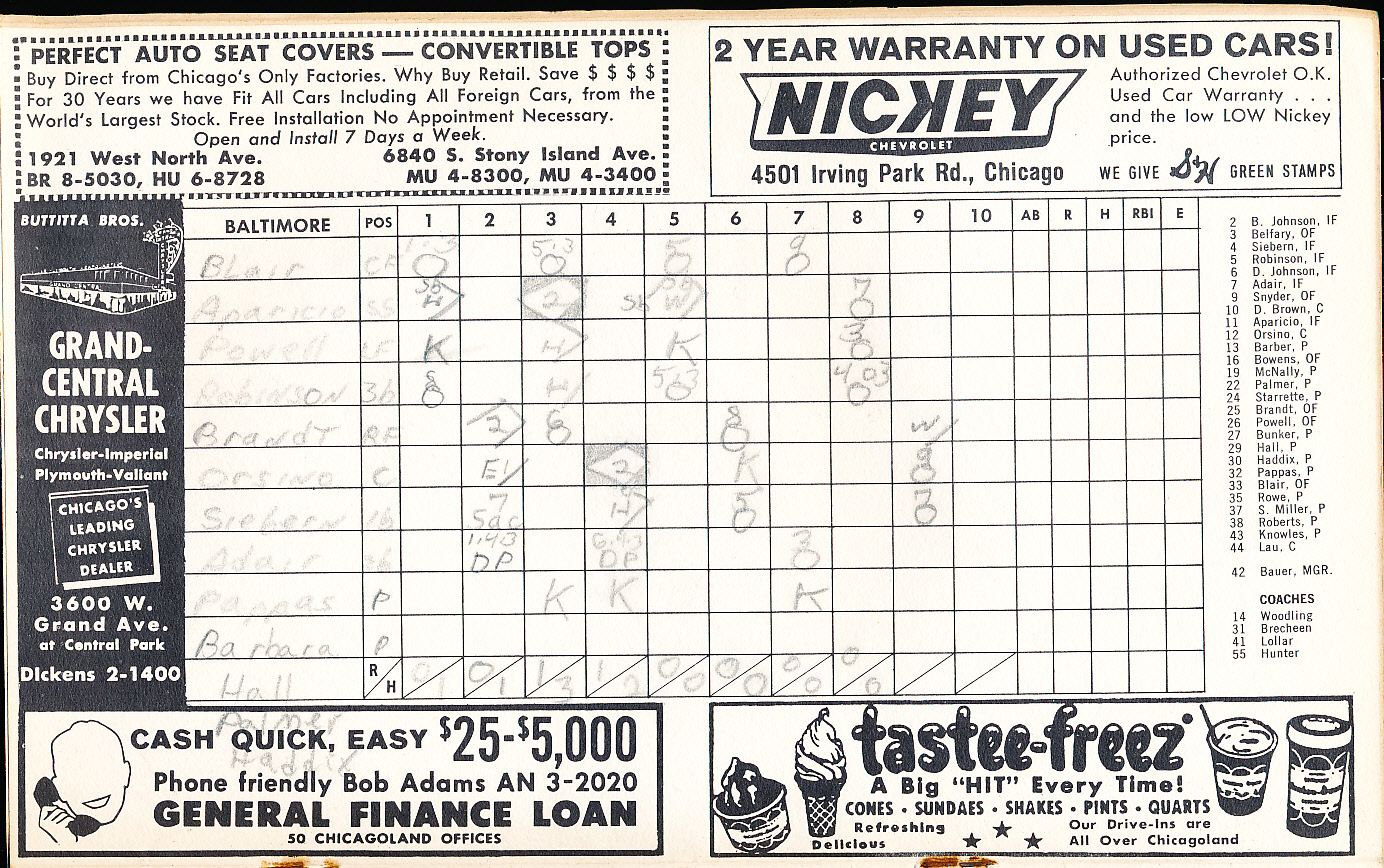 PERFECT AUTO SEAT COVERS — CONVERTIBLE TOPS
Buy Direct from Chicago's Only Factories. Why Buy Retail. Save $ $ $ $
For 30 Years we have Fit All Cars Including All Foreign Cars, from the
World's Largest Stock. Free Installation No Appointment Necessary.
Open and Install 7 Days a Week.
1921 West North Ave. 6840 S. Stony Island Ave.
BR 8-5030, HU 6-8728 MU 4-8300, MU 4-3400
2 YEAR WARRANTY ON USED CARS!
NICKEY
CHEVROLET
Authorized Chevrolet O.K.
Used Car Warranty . . .
and the low LOW Nickey
price.
4501 Irving Park Rd., Chicago WE GIVE S&H GREEN STAMPS
BUTTITTA BROS.
GRAND-
CENTRAL
CHRYSLER
Chrysler-Imperial
Plymouth-Valiant
CHICAGO'S
LEADING
CHRYSLER
DEALER
3600 W.
Grand Ave.
at Central Park
DIckens 2-1400
BALTIMORE POS 1 2 3 4 5 6 7 8 9 10 AB R H RBI E
Blair CF 1-3 0 5-3 0 5 0 9 0
Aparicio SS Sb H 2 Sb W 7 0
Powell LF K H K 3 0
Robinson 3b 8 0 H 5-3 0 403 0
Brandt RF 2 6 8 0 W
Orsino C E1 2 K 9 0
Siebern 1b 7 Sac H 5 0 7 0
Adair 2b 1-43 DP 6-43 DP 3 0
Pappas P K K K
Barbara P
Hall R/H 0/1 0/1 1/3 1/2 0/0 0/0 0/0 0/0
Palmer
Haddix
2 B. Johnson, IF
3 Belfary, OF
4 Siebern, IF
5 Robinson, IF
6 D. Johnson, IF
7 Adair, IF
9 Snyder, OF
10 D. Brown, C
11 Aparicio, IF
12 Orsino, C
13 Barber, P
16 Bowens, OF
19 McNally, P
22 Palmer, P
24 Starrette, P
25 Brandt, OF
26 Powell, OF
27 Bunker, P
29 Hall, P
30 Haddix, P
32 Pappas, P
33 Blair, OF
35 Rowe, P
37 S. Miller, P
38 Roberts, P
43 Knowles, P
44 Lau, C
42 Bauer, MGR.
COACHES
14 Woodling
31 Brecheen
41 Lollar
55 Hunter
CASH QUICK, EASY $25-$5,000
Phone friendly Bob Adams AN 3-2020
GENERAL FINANCE LOAN
50 CHICAGOLAND OFFICES
tastee-freez
A Big "HIT" Every Time!
CONES • SUNDAES • SHAKES • PINTS • QUARTS
Refreshing
Delicious
Our Drive-Ins are
All Over Chicagoland